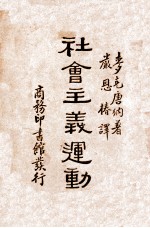 麥克唐納著
嚴恩椿譯
社會主義運動
商務印書館發行